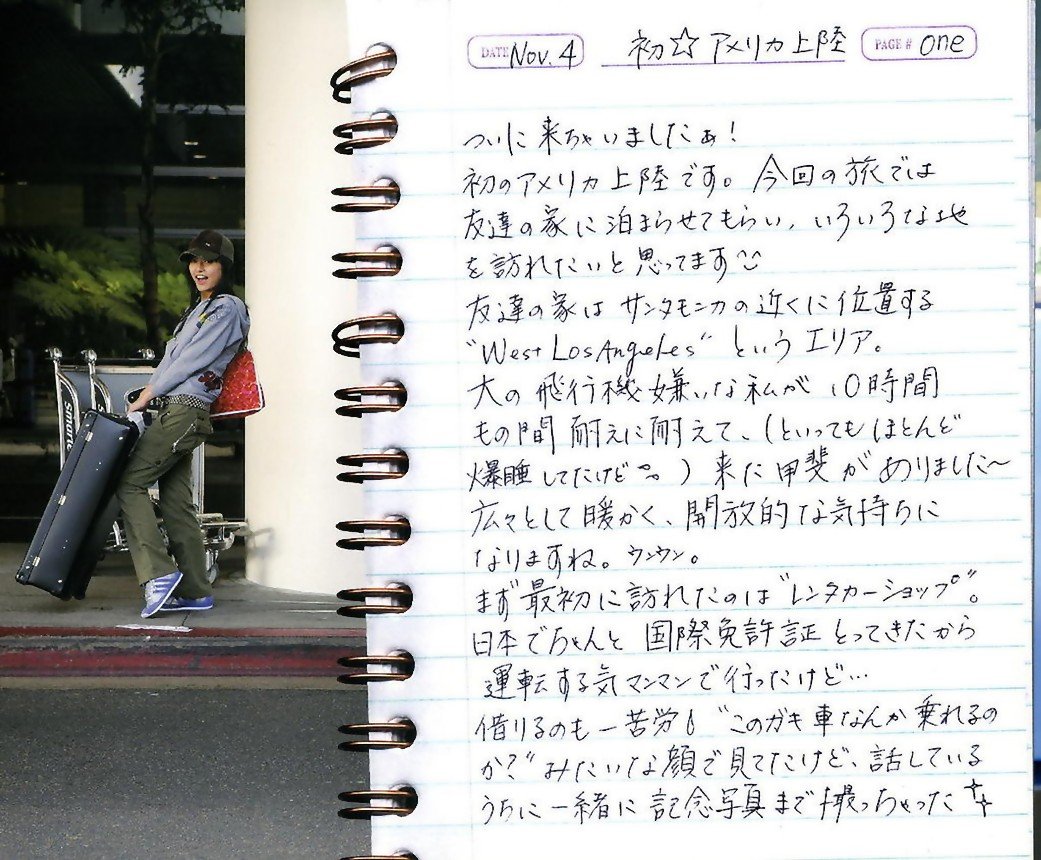 DATE Nov. 4 初☆アメリカ上陸 PAGE # one
ついに来ちゃいましたぁ！
初のアメリカ上陸です。今回の旅では
友達の家に泊まらせてもらい、いろいろな地
を訪れたいと思ってます
友達の家はサンタモニカの近くに位置する
"West Los Angeles" というエリア。
大の飛行機嫌いな私が 10時間
もの間耐えに耐えて、(といってもほとんど
爆睡してたけど。) 来た甲斐がありました〜
広々として暖かく、開放的な気持ちに
なりますね。ウンウン。
まず最初に訪れたのは"レンタカーショップ"。
日本でちゃんと国際免許証とってきたから
運転する気マンマンで行ったけど…
借りるのも一苦労 "このガキ車なんか乗れるの
か?" みたいな顔で見てたけど、話している
うちに一緒に記念写真まで撮っちゃった